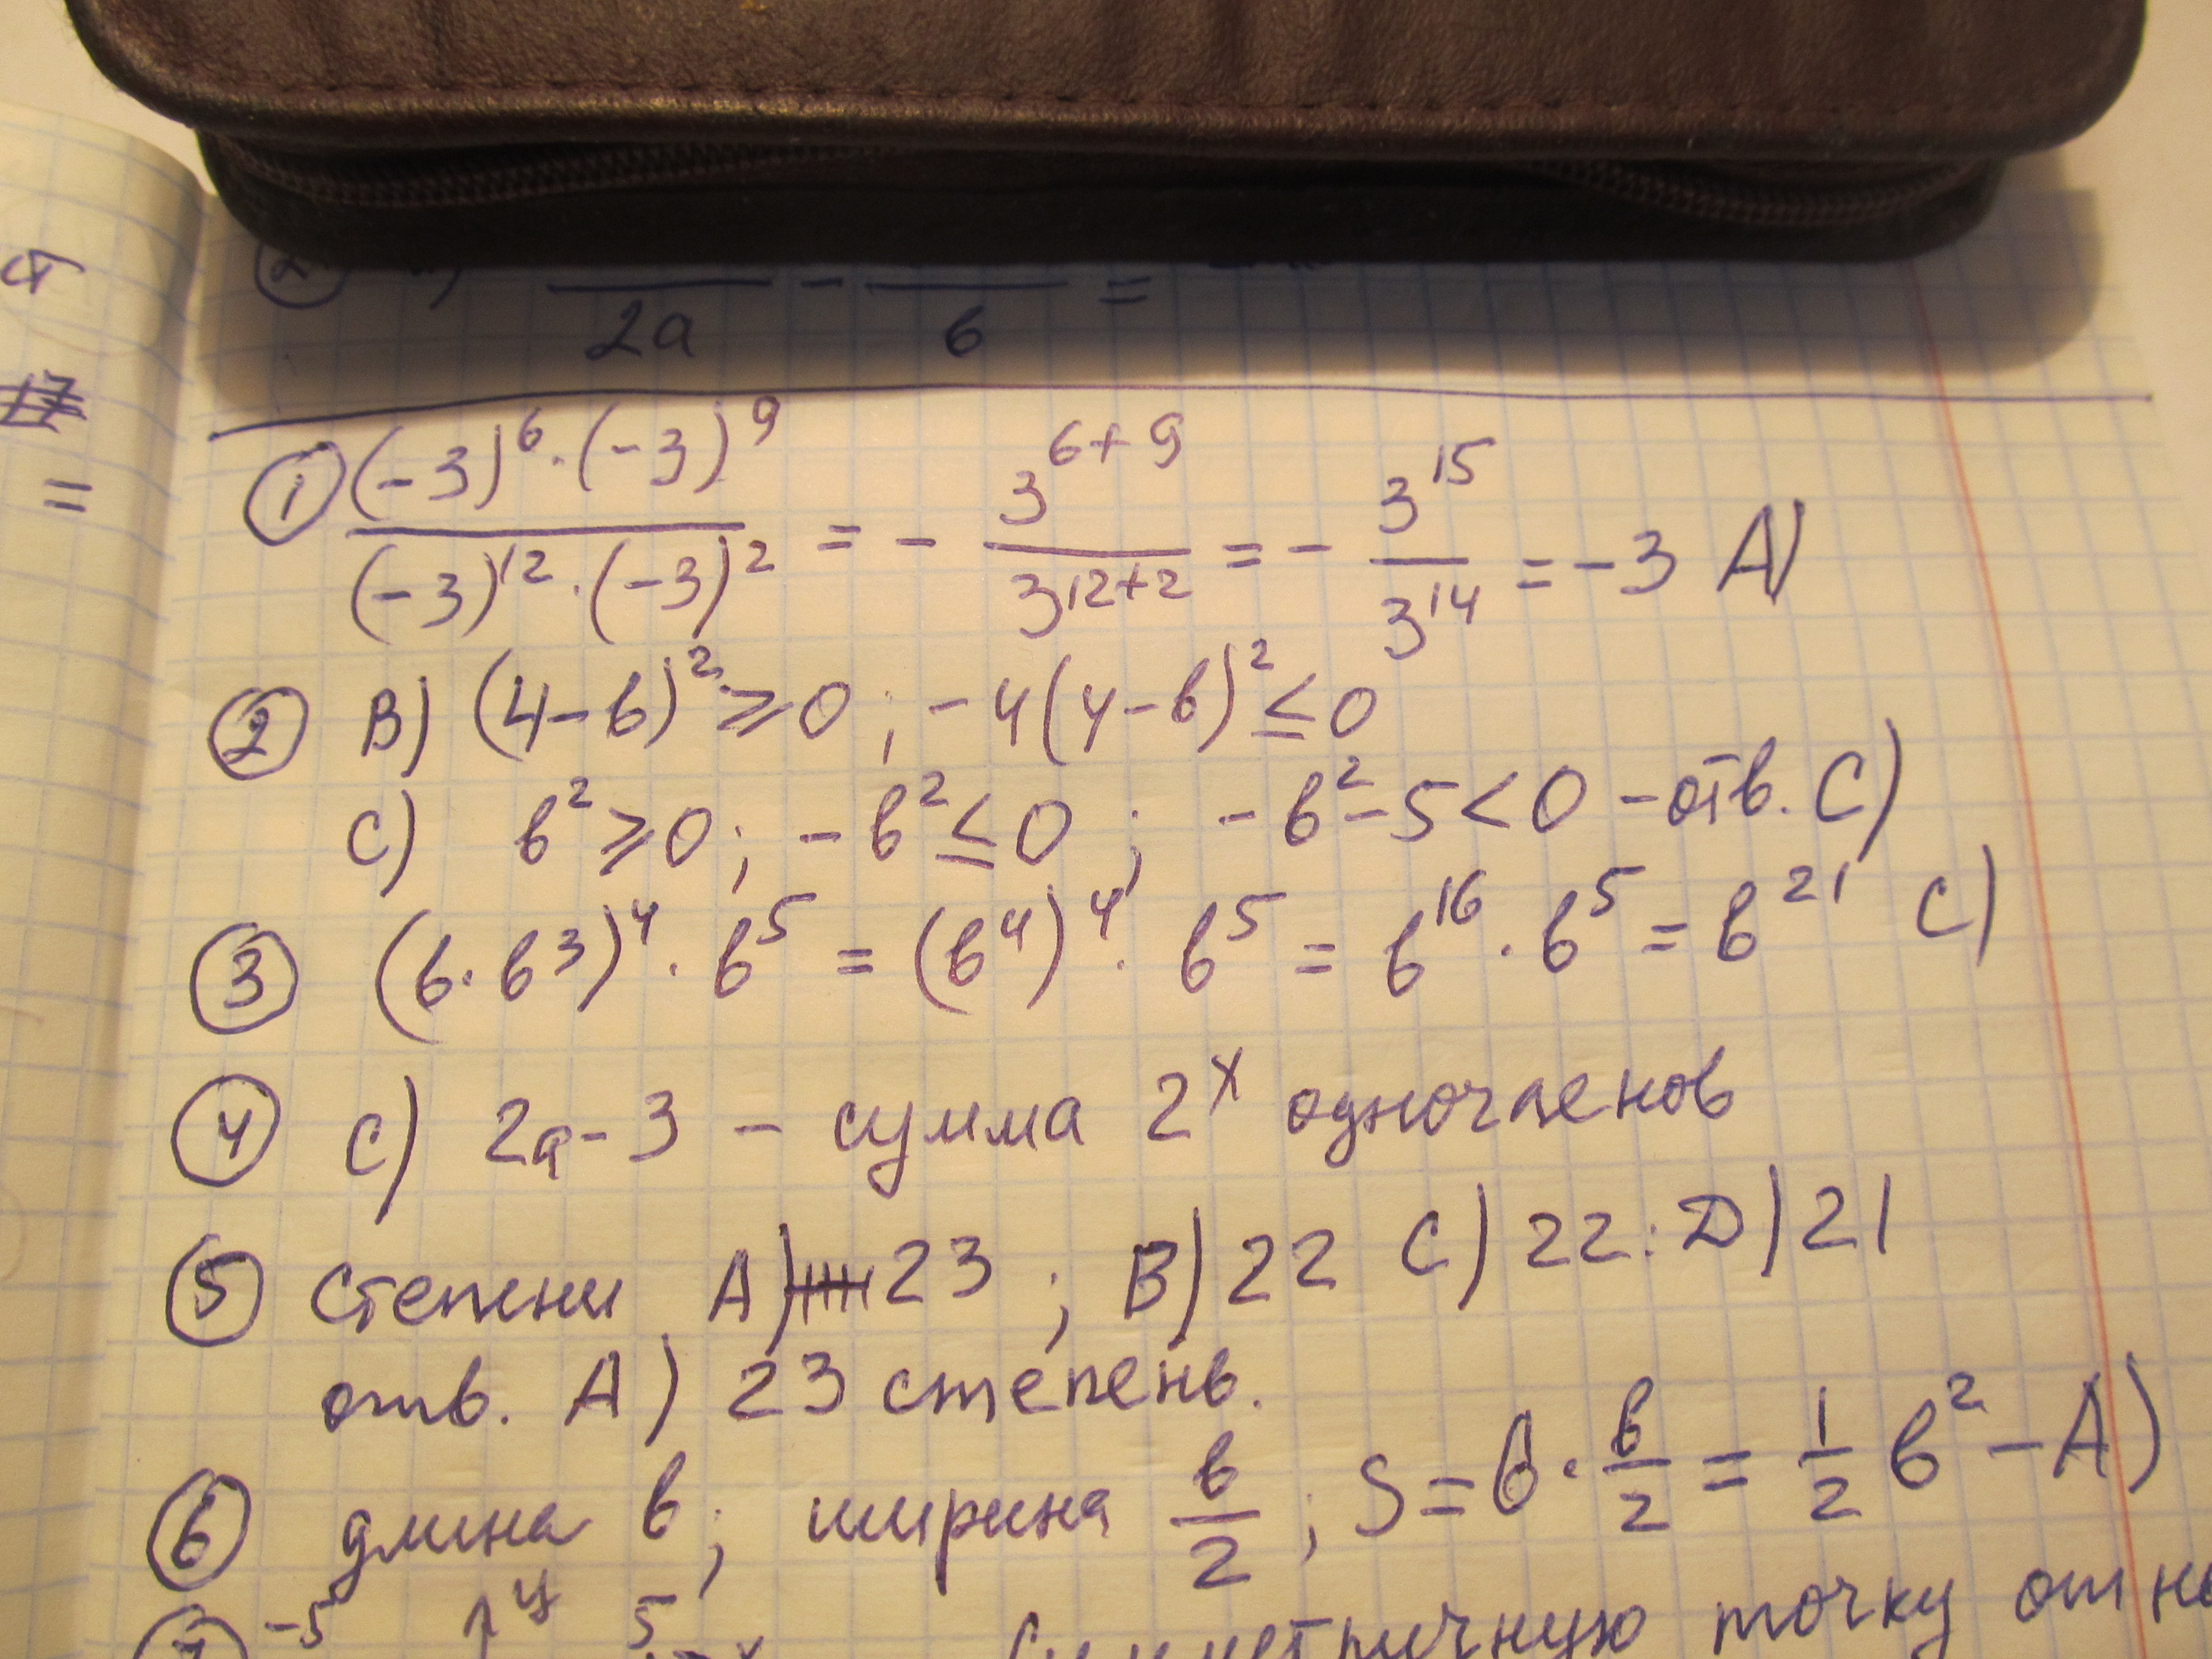 ст
17
=
2a - 6 =
① (-3)⁶·(-3)⁹ / (-3)¹²·(-3)² = - 3⁶⁺⁹ / 3¹²⁺² = - 3¹⁵ / 3¹⁴ = -3 A)
② B) (4-b)² ≥ 0 ; -4(4-b)² ≤ 0
C) b² ≥ 0 ; -b² ≤ 0 ; -b² - 5 < 0 - отв. C)
③ (b·b³)⁴ · b⁵ = (b⁴)⁴ · b⁵ = b¹⁶ · b⁵ = b²¹ C)
④ C) 2a-3 - сумма 2ˣ одночленов
⑤ Степени A) 23 ; B) 22 C) 22: D) 21
отв. A) 23 степень.
⑥ длина b ; ширина b/2 ; S = b · b/2 = 1/2 b² - A)
⑦ -5 y 5 x симметричную точку отно